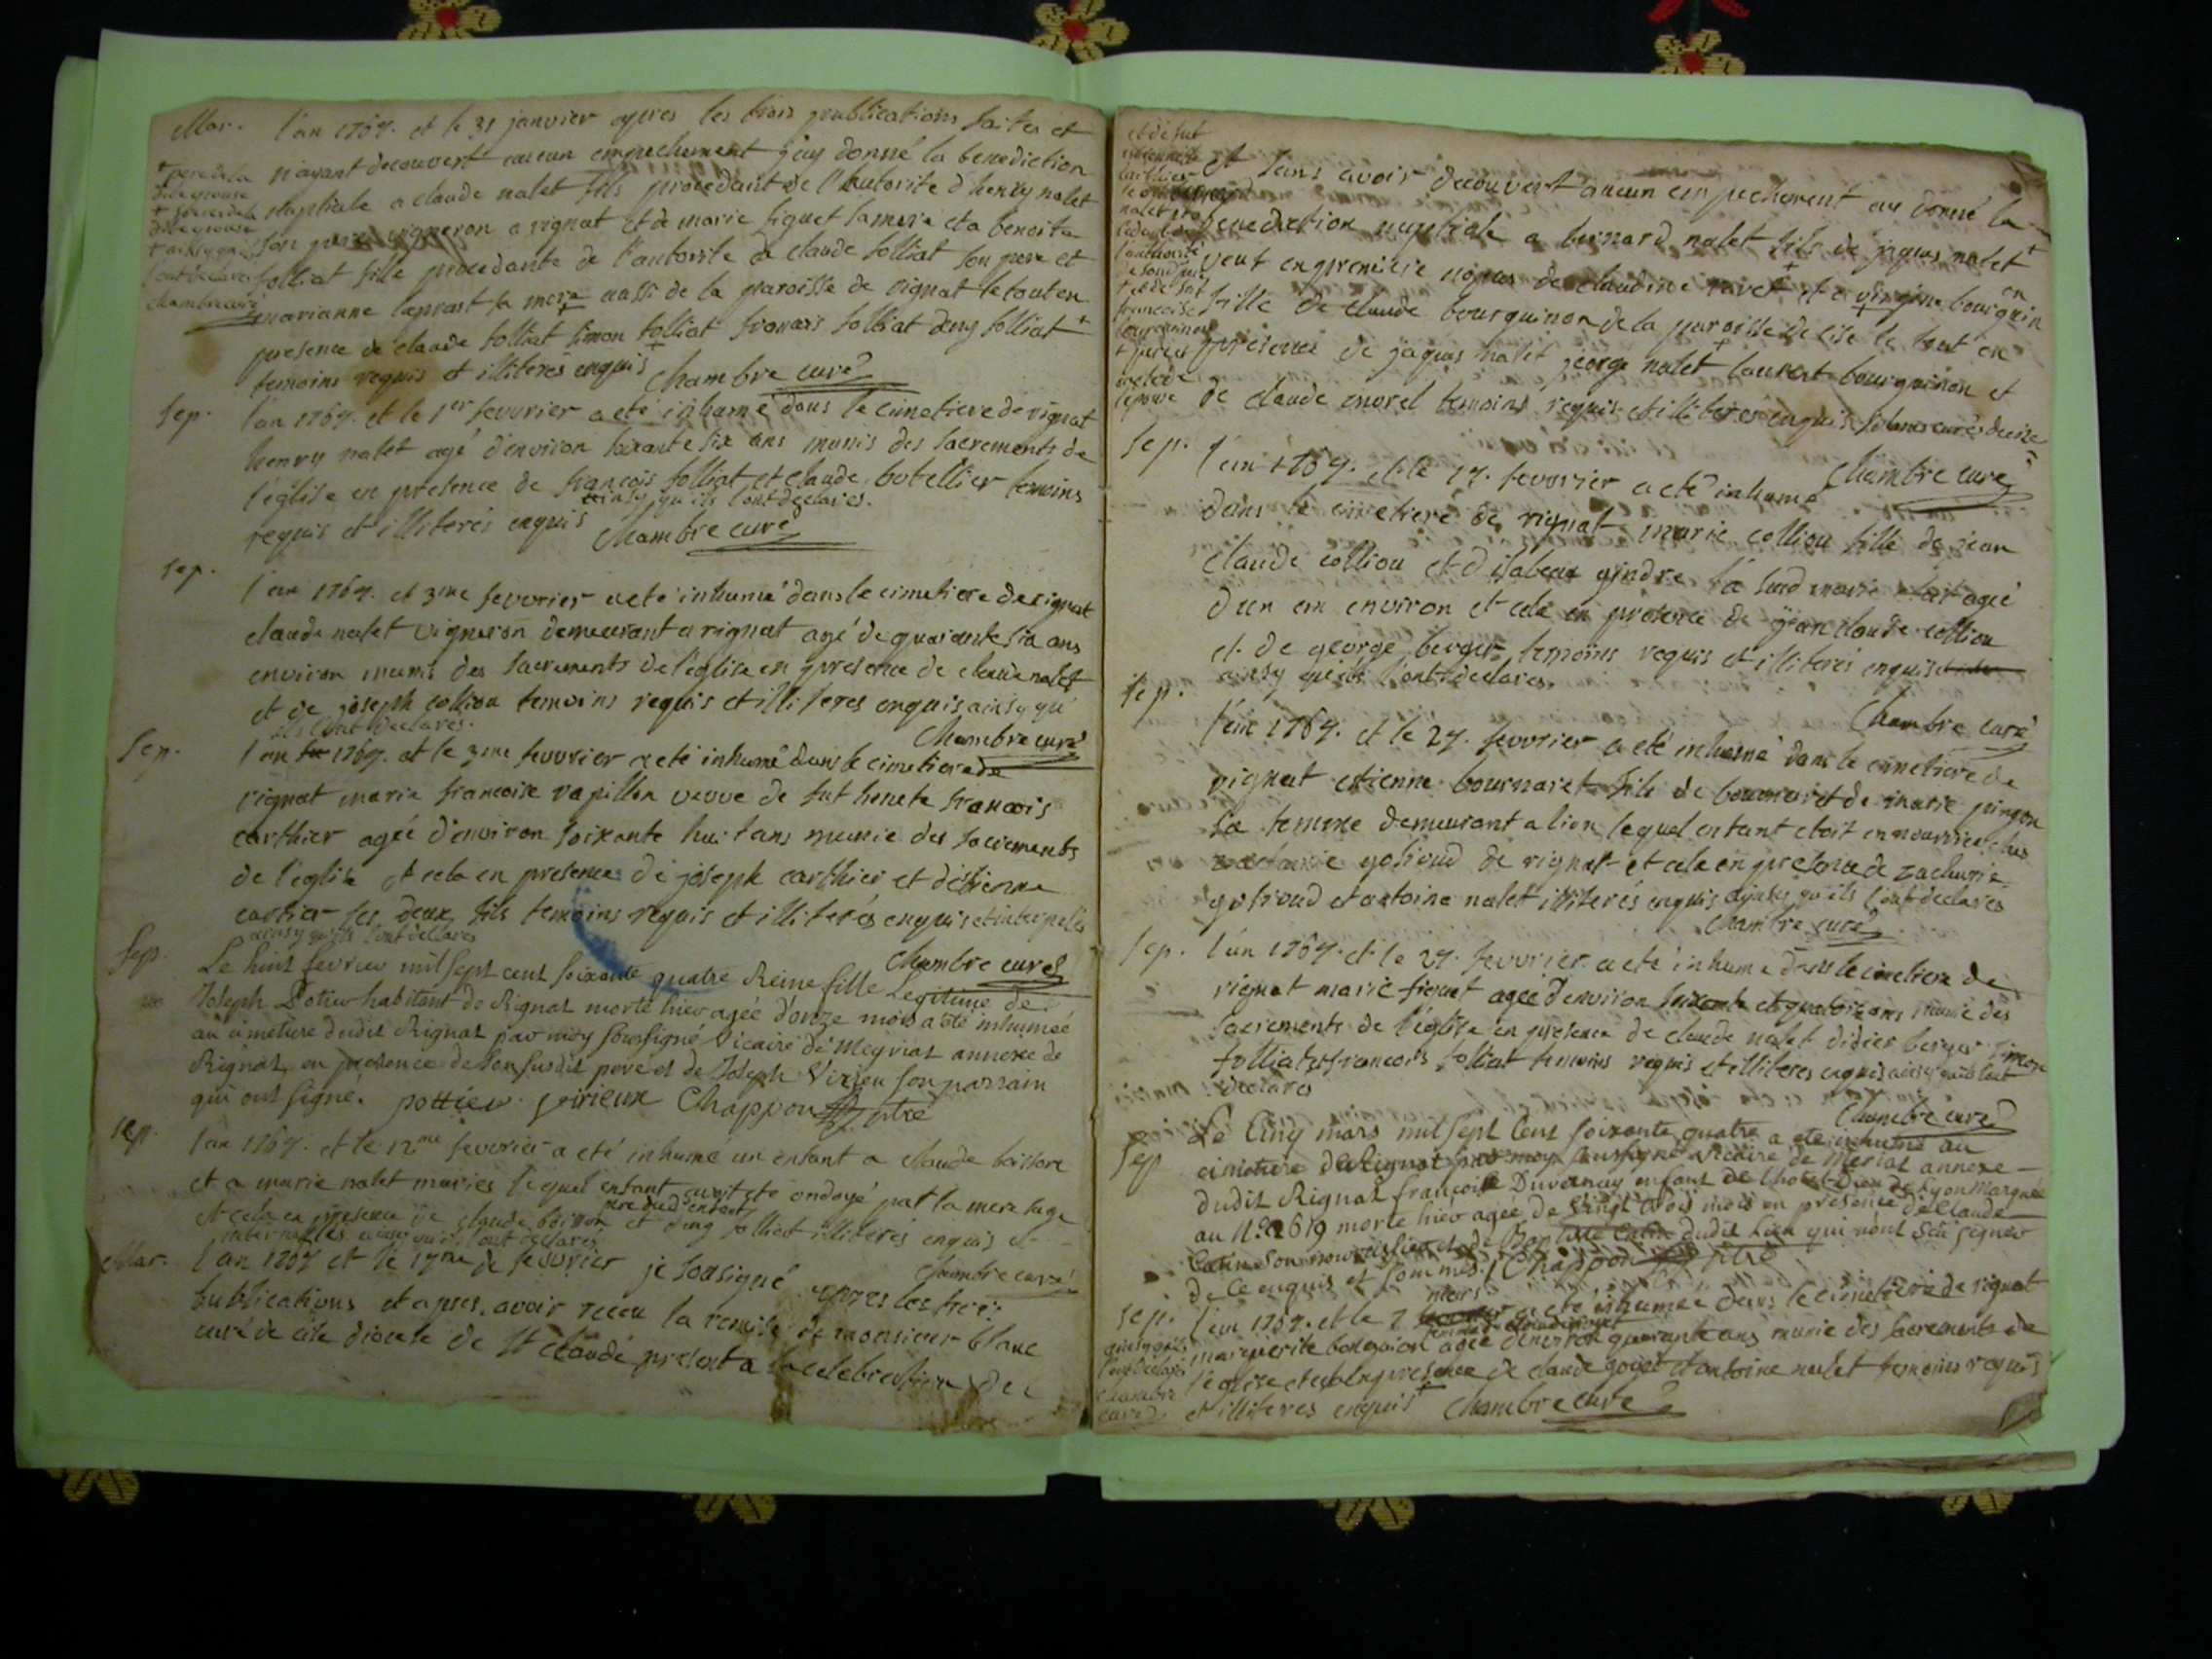 Mar. l'an 1764. et le 31 janvier apres les trois publications faites et
n'ayant decouvert aucun empechement j'ay donné la benediction
nuptiale a claude nalet fils procedant de l'autorité d'henry nalet
son pere vigneron a rignat et de marie figuet sa mere et a benoite
folliat fille procedante de l'autorite de claude folliat son pere et
marianne sa mere + aussi de la paroisse de rignat le tout en
presence de claude folliat simon folliat francois folliat deny folliat +
temoins requis et illiterés enquis + Chambre curé
+ pere de la
dite epouse
+ freres de la
dite epouse
+ ainsy qu'ils
l'ont declarés
chambre curé
Sep. l'an 1764. et le 1er fevvrier a eté inhumé dans le cimetiere de rignat
henry nalet agé d'environ soixante six ans munis des sacrements de
l'église en presence de francois folliat et claude botellier temoins
requis et illiterés enquis ainsy qu'ils l'ont declarés.
Chambre curé
Sep. l'an 1764. et 3me fevvrier a eté inhumé dans le cimetiere de rignat
claude nalet vigneron demeurant a rignat agé de quarante six ans
environ munis des sacrements de l'église en presence de claude nalet
et de joseph colliou temoins requis et illiteres enquis ainsy qu'
ils l'ont declarés.
Chambre curé
Sep. l'an 1764. et le 3me fevvrier a eté inhumé dans le cimetiere de
rignat marie francoise vapillon veuve de fut honete francois
carthier agée d'environ soixante huit ans munie des sacrements
de l'église et cela en presence de joseph carthier et d'etienne
cartier ses deux fils temoins requis et illiterés enquis et interpelés
ainsy qu'ils l'ont declarés
Chambre curé
Sep. Le huit fevrier mil sept cent soixante quatre Reine fille Legitime de
Joseph Potier habitant de Rignat morte hier agée d'onze mois a été inhumée
au cimetiere dudit Rignat par moy soussigné Vicaire de Meyriat annexe de
Rignat, en presence de son susdit pere et de Joseph Virieu son parrain
qui ont signé. pottier. virieux Chappon ptre
Sep. l'an 1764. et le 12me fevvrier a eté inhumé un enfant a claude boisson
et a marie nalet mariés lequel enfant avoit eté ondoyé par la mere sage
et cela en presence de claude boisson pere dud. enfant et deny folliat illiterés enquis et
interpellés ainsy qu'ils l'ont declarés
Chambre curé
Mar. l'an 1764 et le 17me de fevvrier je sousigné apres les trois
publications et apres avoir receu la remise de monsieur blanc
curé de cise diocese de St claude present a la celebration de
et sans avoir decouvert aucun empechement ay donné la
benediction nuptiale a bernard nalet fils de jaques nalet +
veuf en premiere nopces de claudine + et a virgine bourguin
on
fille de claude bourguinon de la paroisse de cise le tout en
presences de jaques nalet george nalet + laurent bourguinon et
de claude morel temoins requis et illiterés enquis blanc curé de cise
Chambre curé
Sep. l'an 1764. et le 17. fevvrier a eté inhumé
dans le cimetiere de rignat marie colliou fille de jean
claude colliou et d'isabeau gindre la sud marie etoit ageé
d'un an environ et cela en presence de jean claude colliou
et de george berger temoins requis et illiterés enquis
ainsy qu'ils l'ont declarés.
Chambre curé
Sep. l'an 1764. et le 24. fevvrier a eté inhumé dans le cimetiere de
rignat etienne bournaret fils de bournaret de marie pingon
sa femme demeurant a lion lequel enfant etoit en nourrice chez
zacharie goliroud de rignat et cela en presence de zacharie
goliroud et antoine nalet illiterés enquis ainsy qu'ils l'ont declarés
Chambre curé
Sep. l'an 1764. et le 24. fevvrier a eté inhumé dans le cimetiere de
rignat marie figuet agée d'environ soixante et quatorze ans munie des
sacrements de l'église en presence de claude nalet didier berger simon
folliat et francois folliat temoins requis et illiteres enquis ainsy qu'ils l'ont
declarés
Chambre curé
Sep Le Cinq mars mil sept cent soixante quatre a eté inhumé au
cimetiere de Rignat par moy soussigné Vicaire de Meriat annexe
dudit Rignat francoise Duvernay enfant de l'hotel-Dieu de Lyon Marquée
au N.° 2619 morte hier agée de vingt trois mois en presence de Claude
Catin son nourrissier et de Catin dudit Lieu qui n'ont sçu signer
de ce enquis et sommés. Chappon ptre
Sep. l'an 1764. et le 7 mars a eté inhumée dans le cimetiere de rignat
marguerite femme agée d'environ quarante ans munie des sacrements de
l'eglise et cela en presence de claude gouet et antoine nalet temoins requis
et illiteres enquis + Chambre curé
ainsy qu'ils
l'ont declarés
Chambre
curé